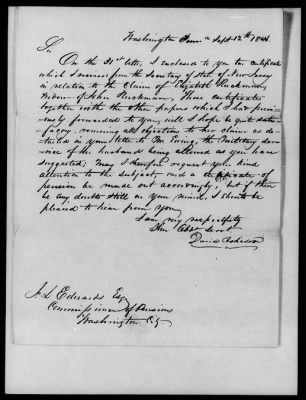 Washington Sept 12th 1844
Sir
On the 31st ulto, I enclosed to you two certificates
which I received from the Secretary of State of New Jersey
in relation to the Claim of Elizabeth
Widow of John These certificates
together with the other papers which I had previ-
ously forwarded to you, will I hope be quite satis-
factory, removing all objections to her claim as de-
tailed in your letter to Mr the Military ser-
vice of the husband being allowed as you have
suggested; May I therefore request your kind
attention to the subject, and a certificate of
pension be made out accordingly; but if there
be any doubts still on your mind, I should be
pleased to hear from you
I am very respectfully
Your Obt Servt
David
J. L. Edwards Esq
Commissioner of Pensions
Washington City